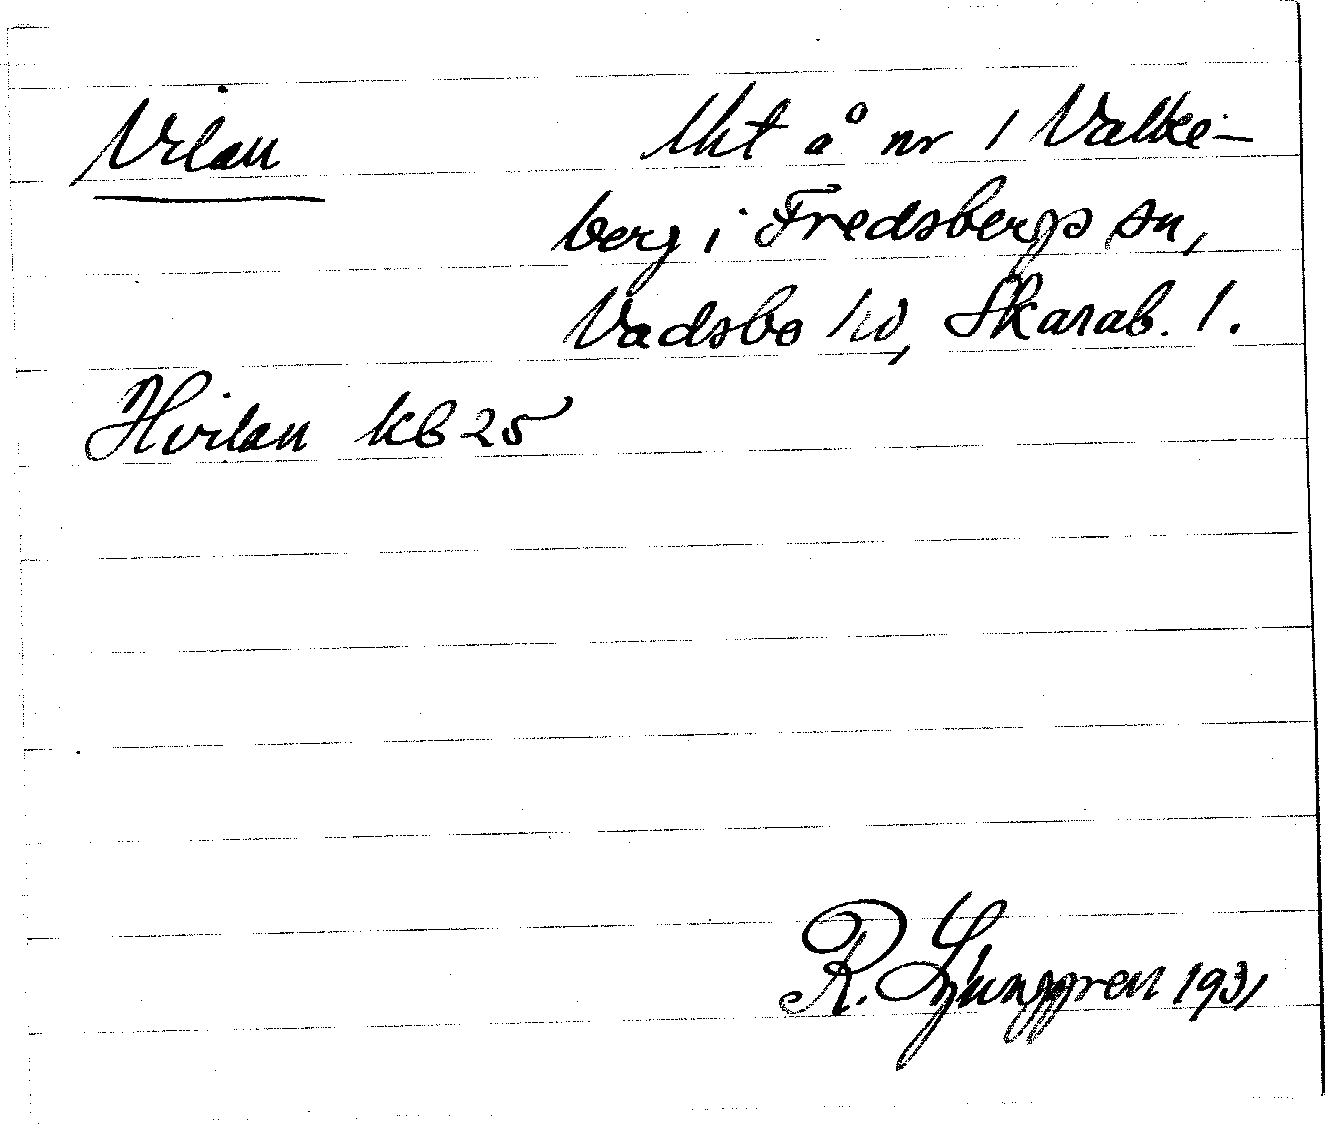 Vilan lht å nr 1 Valke-
berg i Fredsbergs sn,
Vadsbo hd, Skarab. l.
Hvilan kb 25
R. Ljunggren 1931